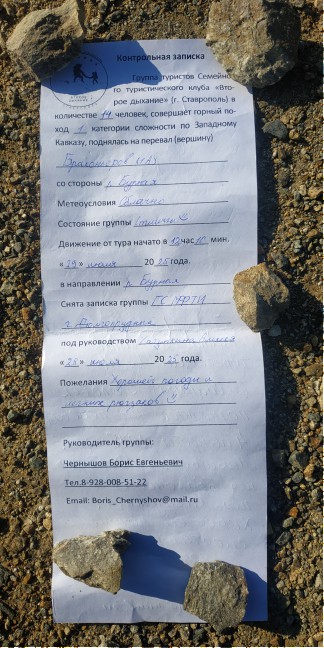 Контрольная записка
Группа туристов Семейно-
го туристического клуба «Вто-
рое дыхание» (г. Ставрополь) в
количестве 19 человек, совершает горный по-
ход 1 категории сложности по Западному
Кавказу, поднялась на перевал (вершину)
Браконьеров (1А)
со стороны р. Бурная
Метеоусловия Облачно
Состояние группы Отлично
Движение от тура начато в час мин.
« » июля 2025 года.
в направлении р. Бурная
Снята записка группы МФТИ
г. Долгопрудный
под руководством
« » июля 2025 года.
Пожелания Хорошей погоды и
легких рюкзаков
Руководитель группы:
Чернышов Борис Евгеньевич
Тел.8-928-008-51-22
Email: Boris_Chernyshov@mail.ru